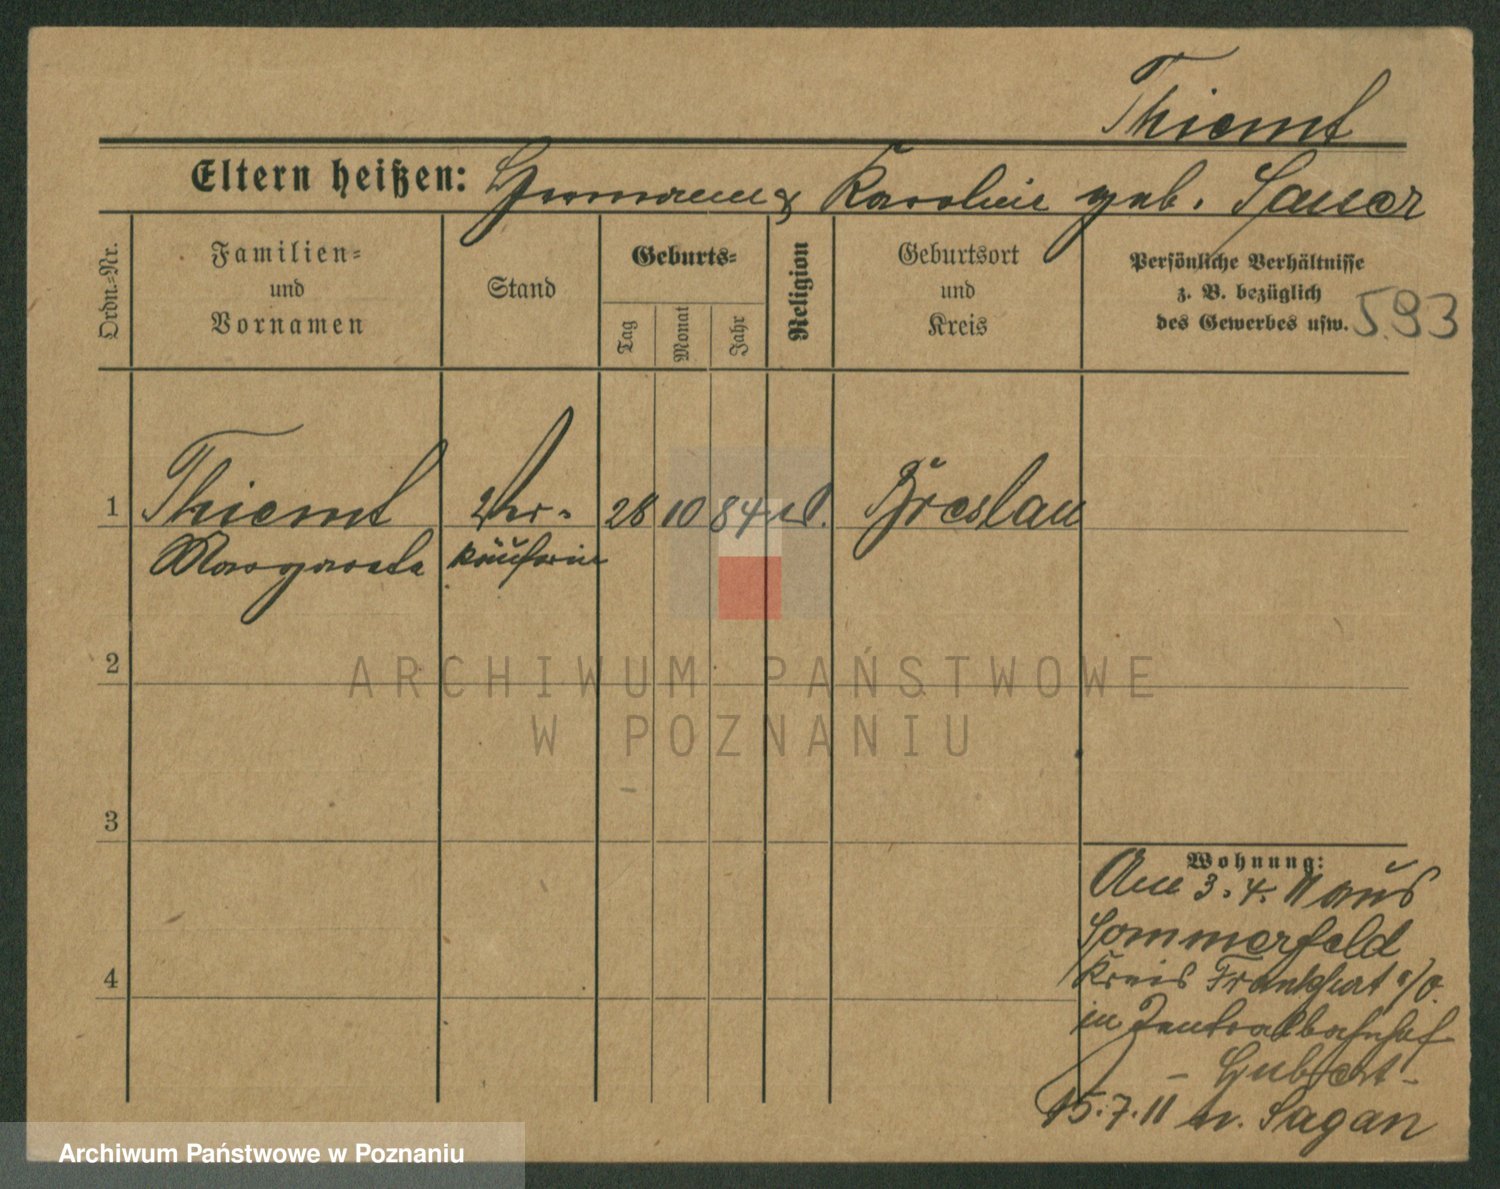 Thiemt
Eltern heißen: Hermann & Karoline geb. Sauer
Ordn.-Nr.
Familien-
und
Vornamen
Stand
Geburts-
Tag
Monat
Jahr
Religion
Geburtsort
und
Kreis
Persönliche Verhältnisse
z. B. bezüglich
des Gewerbes usw.
593
1 Thiemt Ver- 28 10 84 Breslau
Margarete käuferin
2
3
4
Wohnung:
Am 3. 4. 11 aus
Sommerfeld
Kreis Frankfurt a/O.
in Zentralbahnhof
- Hubert -
15. 7. 11 n. Sagan
ARCHIWUM PAŃSTWOWE
W POZNANIU
Archiwum Państwowe w Poznaniu